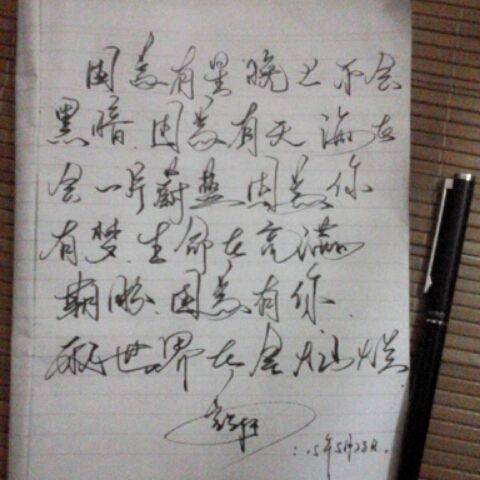 因为有星晚上不会
黑暗.因为有天海才
会一片蔚蓝因为你
有梦.生命才充满
期盼.因为有你.
我世界才会
5年5月23日.